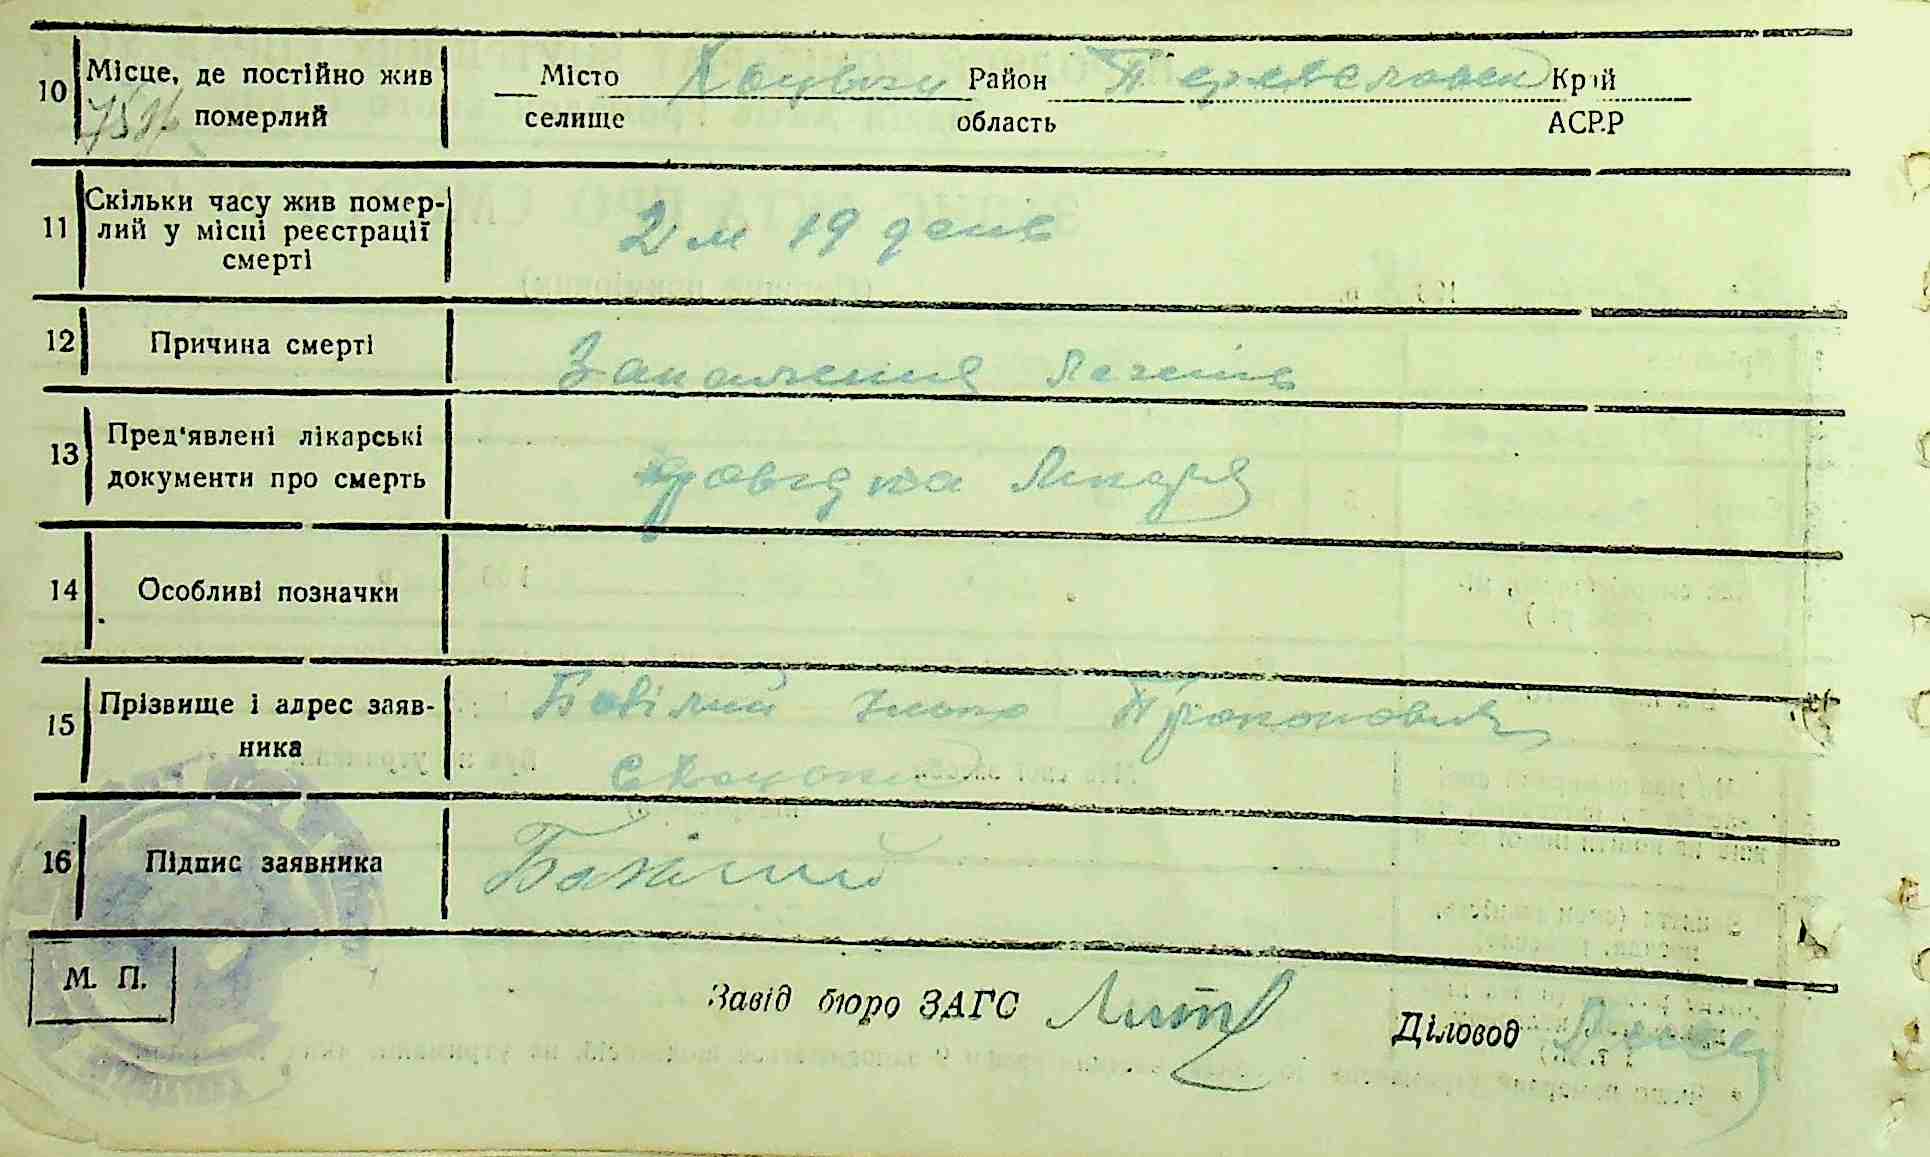 10 Місце, де постійно жив померлий
Місто селище Хоцьки Район область Переяславськ Край АСРР
11 Скільки часу жив помер-
лий у місці реєстрації
смерті
2 м 19 днів
12 Причина смерті
Запалення легенів
13 Пред'явлені лікарські
документи про смерть
довідка лікаря
14 Особливі позначки
15 Прізвище і адрес заяв-
ника
Прокопович
с Хоцьки
16 Підпис заявника
М. П.
Завід бюро ЗАГС
Діловод